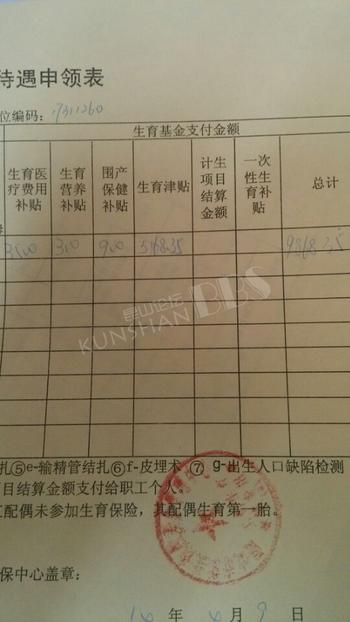 待遇申领表
位编码：
生育基金支付金额
生育医疗费用补贴 生育营养补贴 围产保健补贴 生育津贴 计生项目结算金额 一次性生育补贴 总计
300 900 5168.35
昆山论坛
KUNSHAN BBS
扎⑤e-输精管结扎⑥f-皮埋术 ⑦ g-出生人口缺陷检测
目结算金额支付给职工个人。
工配偶未参加生育保险，其配偶生育第一胎。
保中心盖章：
年 月 9 日